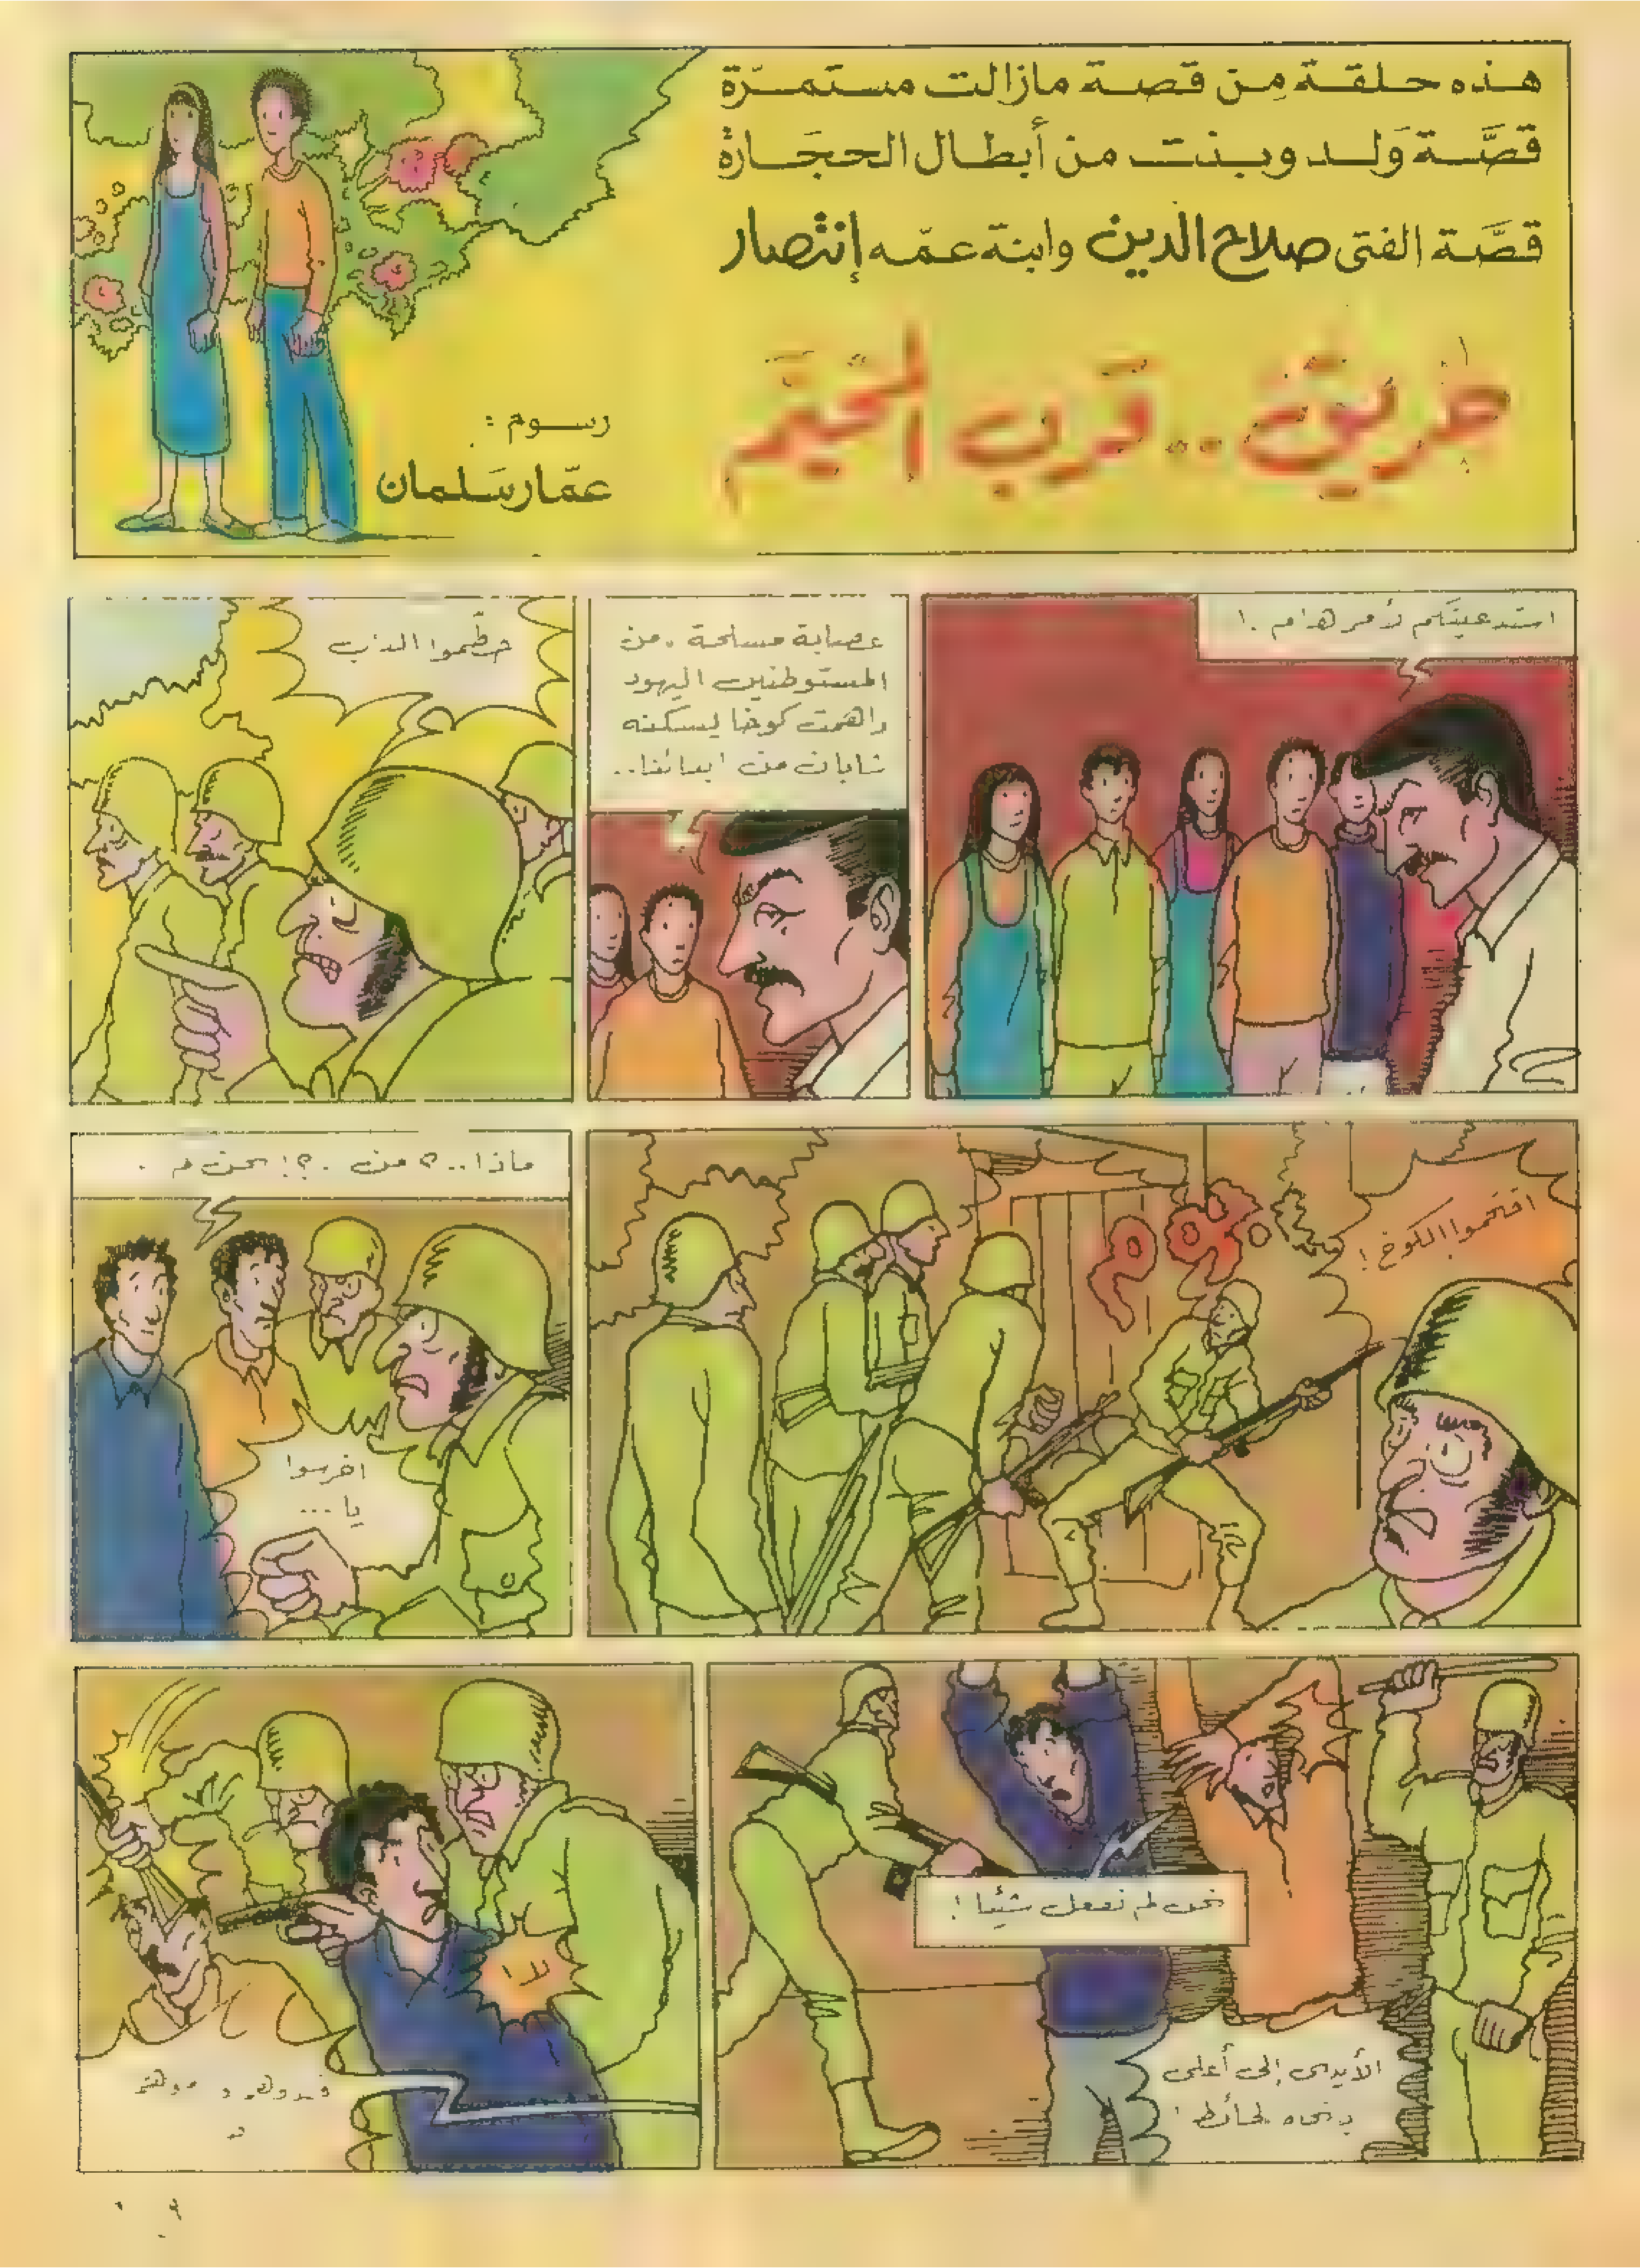 هذه حلقة مِن قصة مازالت مستمرّة
قصَّة وَلد وبنت من أبطال الحجَارة
قصَّة الفتى صلاح الدين وابنة عمّه إنتصار
حريق .. قرب المخيّم
رسوم :
عمّار سَلمان
استدعيتكم لأمر هام .!
عصابة مسلحة .من
المستوطنين اليهود
داهمت كوخا يسكنه
شابان من أبنائنا..
حطّموا الباب
اقتحموا الكوخ !
ماذا..؟ من .؟! نحن لم .
اخرسوا
يا ...
نحن لم نفعل شيئا !
الأيدي إلى أعلى
لا!
قيدوهم